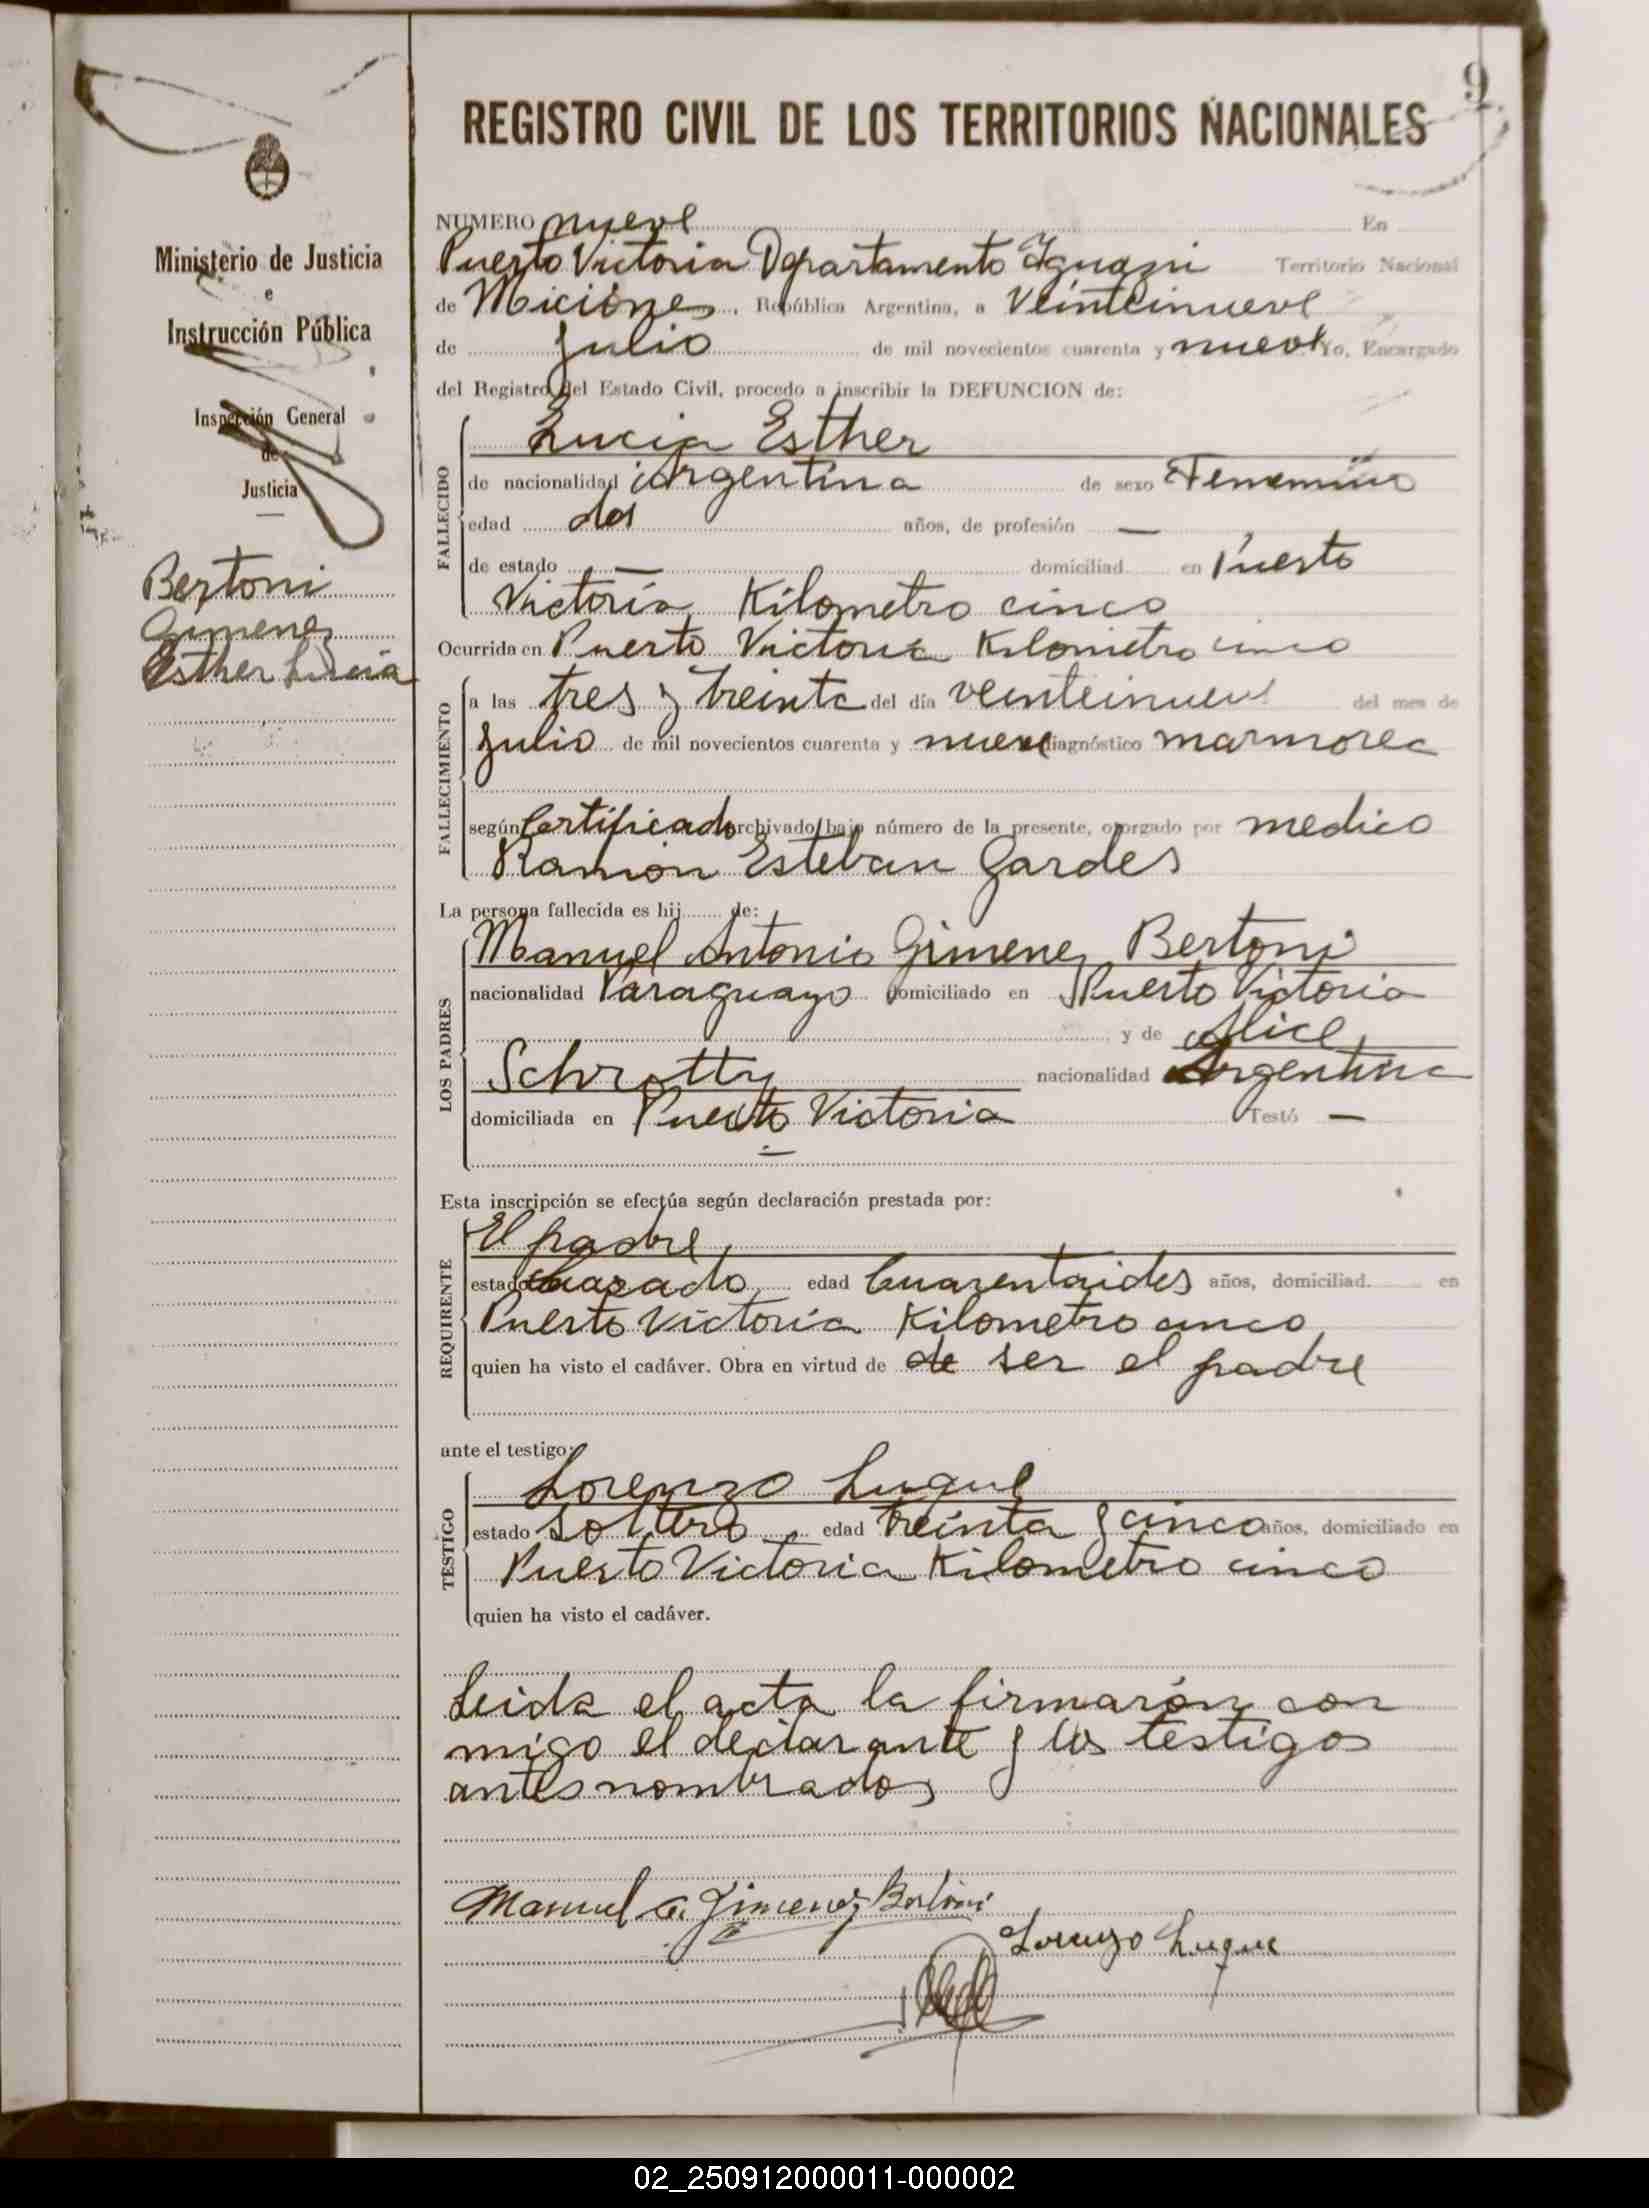 9
REGISTRO CIVIL DE LOS TERRITORIOS NACIONALES
Ministerio de Justicia
e
Instrucción Pública
Inspección General
de
Justicia
Bertoni
Gimenez
Esther Lucia
NUMERO nueve En
Puerto Victoria Departamento Iguazu Territorio Nacional
de Miciones, República Argentina, a Veinteinueve
de Julio de mil novecientos cuarenta y nueve Yo, Encargado
del Registro del Estado Civil, procedo a inscribir la DEFUNCION de:
FALLECIDO
Lucia Esther
de nacionalidad Argentina de sexo Femenino
edad dos años, de profesión —
de estado — domiciliad en Puerto
Victoria Kilometro cinco
Ocurrida en Puerto Victoria Kilometro cinco
FALLECIMIENTO
a las tres y treinta del día veinteinueve del mes de
Julio de mil novecientos cuarenta y nueve diagnóstico marmorea
según Certificado archivado bajo número de la presente, otorgado por medico
Ramón Esteban Gardes
La persona fallecida es hij de:
LOS PADRES
Manuel Antonio Gimenez Bertoni
nacionalidad Paraguayo domiciliado en Puerto Victoria
y de Alice
Schrotty nacionalidad Argentina
domiciliada en Puerto Victoria Testó —
Esta inscripción se efectúa según declaración prestada por:
REQUIRENTE
El padre,
estado Casado edad Cuarentaidos años, domiciliad en
Puerto Victoria Kilometro cinco
quien ha visto el cadáver. Obra en virtud de de ser el padre
ante el testigo:
TESTIGO
Lorenzo Luque
estado soltero, edad treinta y cinco años, domiciliado en
Puerto Victoria Kilometro cinco
quien ha visto el cadáver.
Leida el acta la firmarón con
migo el declarante y los testigos
antes nombrados
Manuel A. Gimenez Bertoni
Lorenzo Luque
02_250912000011-000002